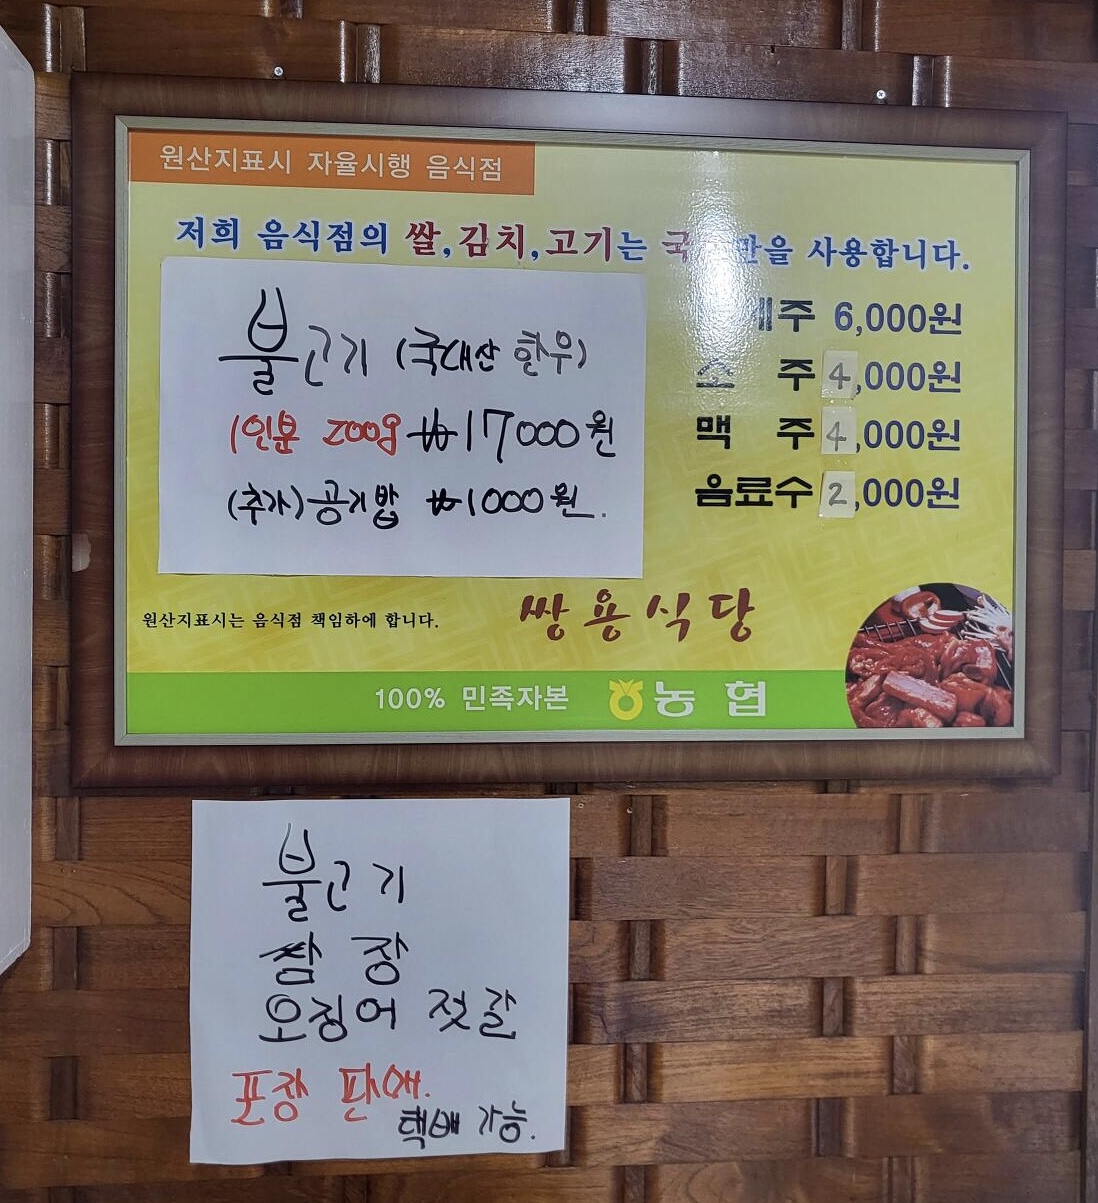 원산지표시 자율시행 음식점
저희 음식점의 쌀,김치,고기는 사용합니다.
불고기 (국내산 한우)
1인분 200g ₩17000원
(추가) 공기밥 ₩1000원.
6,000원
소 주 4,000원
맥 주 4,000원
음료수 2,000원
원산지표시는 음식점 책임하에 합니다.
쌍용식당
100% 민족자본 농협
불고기
쌈장
오징어 젓갈
포장 판매.
택배 가능.